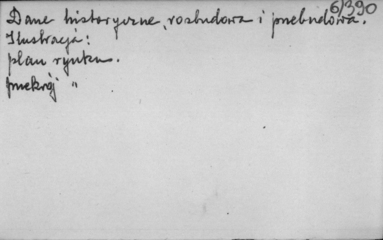 6/390
Dane historyczne, rozbudowa i przebudowa.
Ilustracja:
plan rynku.
przekrój "